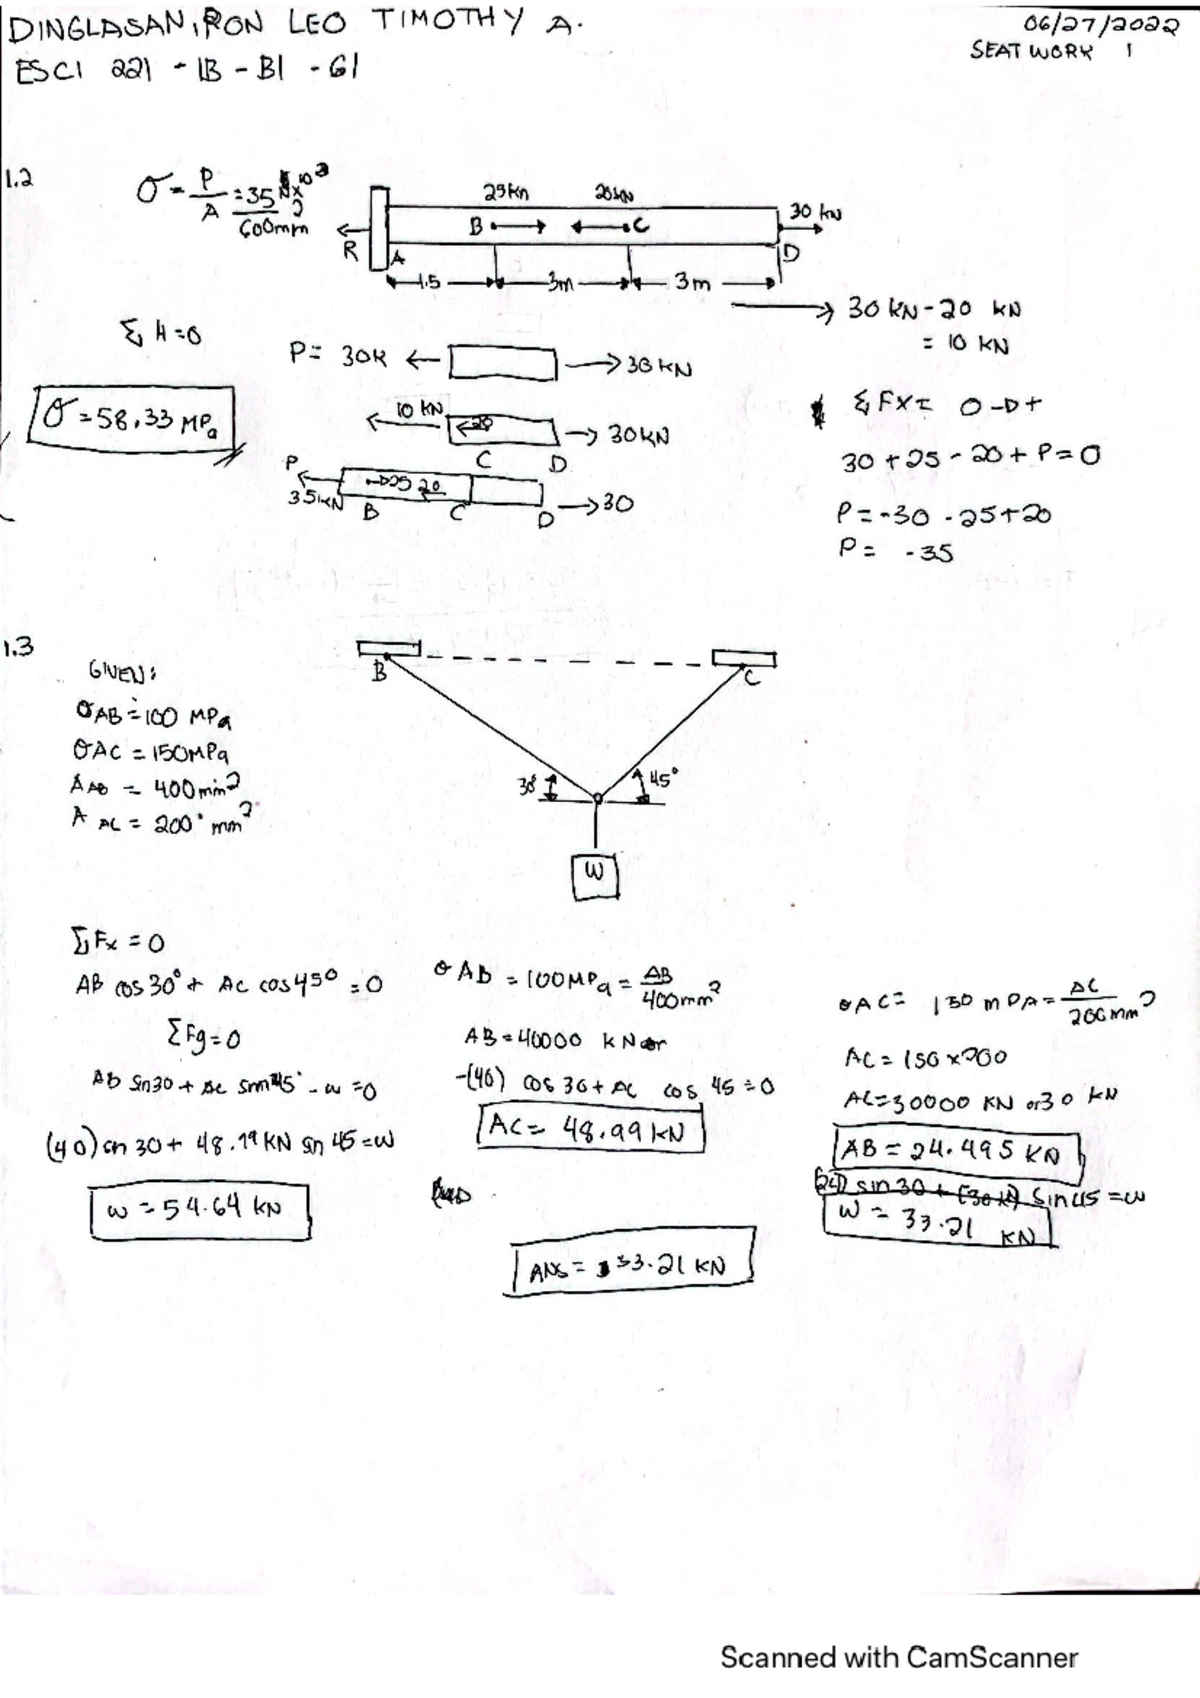 DINGLASAN, RON LEO TIMOTHY A.
06/27/2022
ESCI 221 - 1B - B1 - G1
SEAT WORK 1
1.2
σ = P/A = 35 x 10³ / 600mm²
25kn
20kN
30 kN
B
C
R
A
D
1.5
3m
3m
Σ H = 0
→ 30 kN - 20 kN
= 10 kN
P = 30k ← → 30 kN
σ = 58.33 MPa
10 kN ← 20 → 30KN
C D
P
35kN
→25 20 → 30
B C D
Σ FX = 0 → +
30 + 25 - 20 + P = 0
P = -30 - 25 + 20
P = -35
1.3
GIVEN:
σAB = 100 MPa
σAC = 150MPa
A AB = 400 mm²
A AC = 200 mm²
B
C
30°
45°
W
Σ Fx = 0
AB cos 30° + AC cos 45° = 0
Σ Fy = 0
AB sin30 + AC sin 45° - w = 0
(40) sin 30 + 48.99 KN sin 45 = w
w = 54.64 kN
σ AB = 100 MPa = AB / 400mm²
AB = 40000 kN or
-(40) cos 30 + AC cos 45 = 0
AC = 48.99 kN
ANS = 33.21 KN
σ AC = 150 MPA = AC / 200mm²
AC = 150 x 200
AC = 30000 KN or 30 kN
AB = 24.495 KN
sin 30 + (30k) sin 45 = w
W = 33.21 KN
Scanned with CamScanner